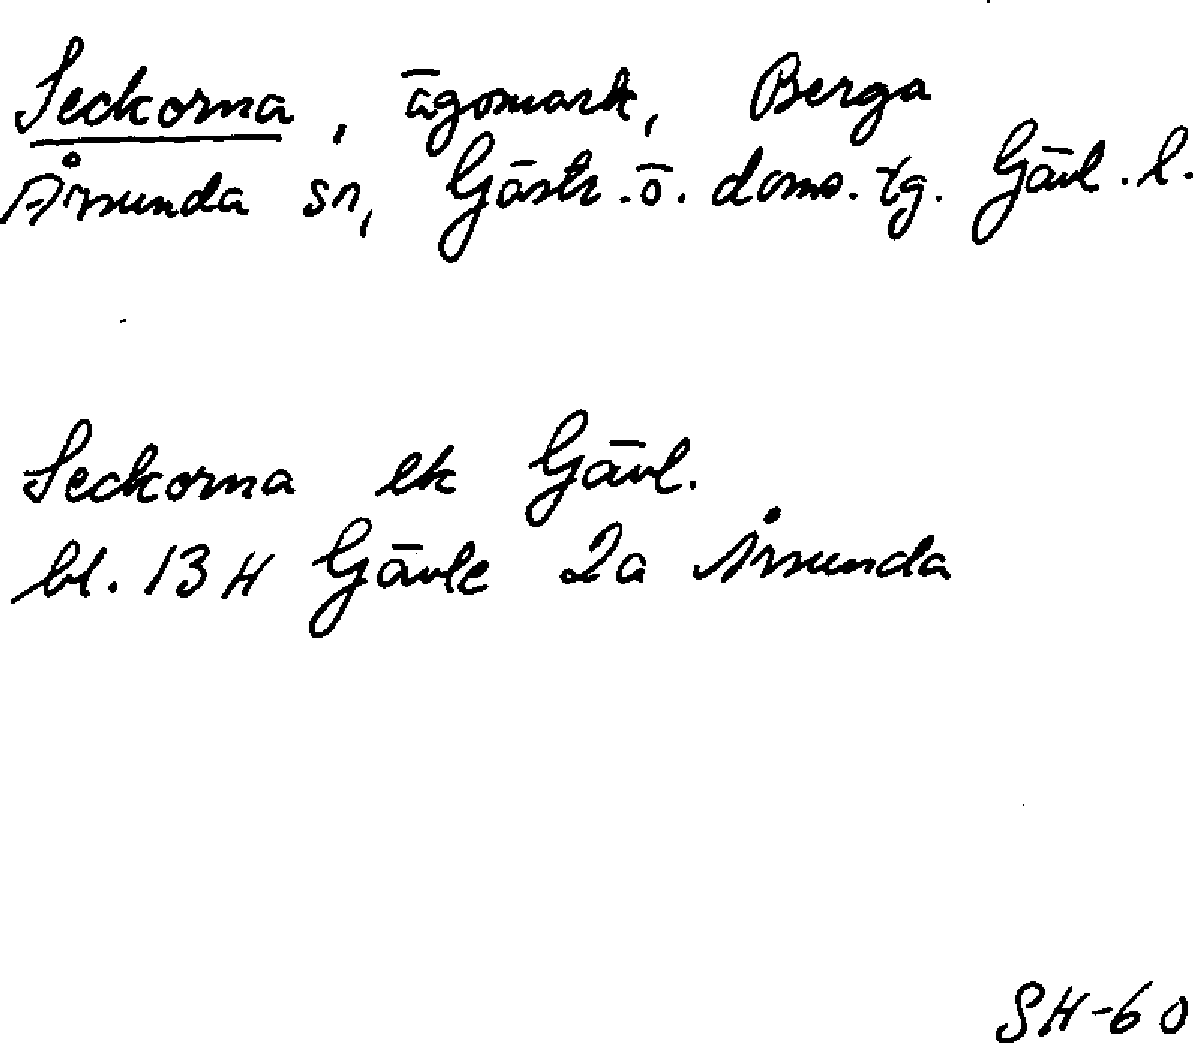 Seckorna, ägomark, Berga
Årsunda sn, Gästr. ö. doms. tg. Gävl. l.
Seckorna ek Gävl.
bl. 13 H Gävle 2a Årsunda
SH-60